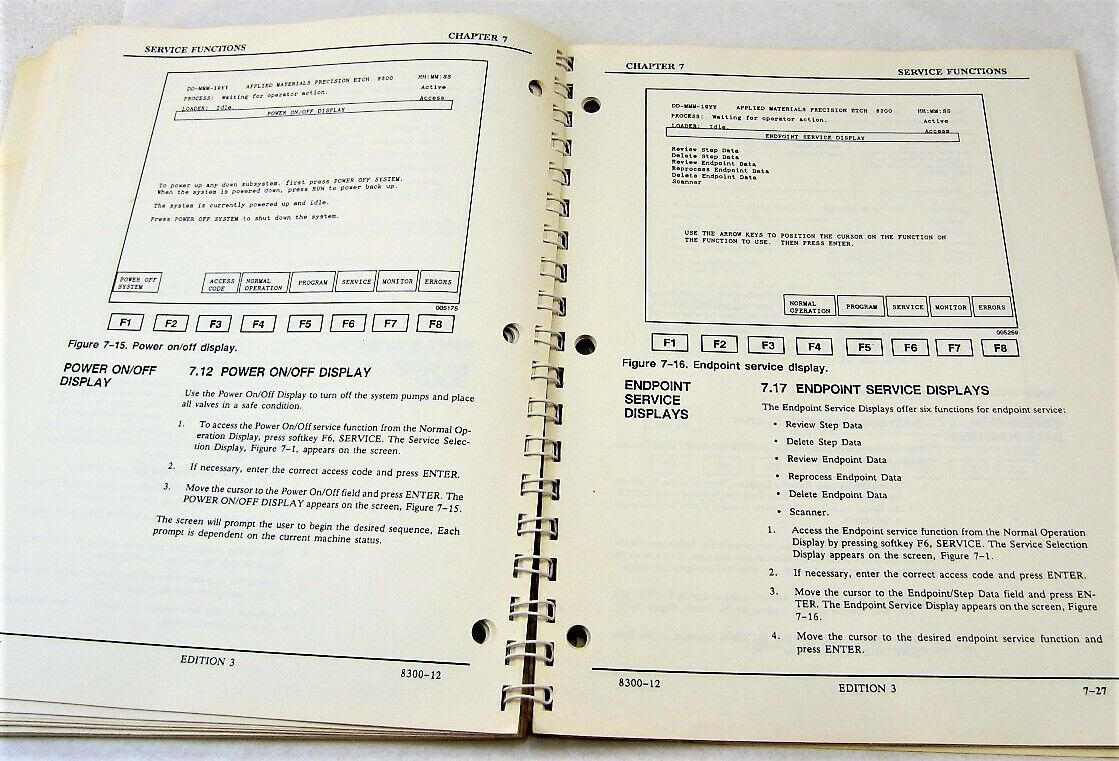 SERVICE FUNCTIONS
CHAPTER 7
DD-MMM-19YY APPLIED MATERIALS PRECISION ETCH 8300 HH:MM:SS
PROCESS: Waiting for operator action. Active
LOADER: Idle. Access
POWER ON/OFF DISPLAY
To power up any down subsystem, first press POWER OFF SYSTEM.
When the system is powered down, press RUN to power back up.
The system is currently powered up and idle.
Press POWER OFF SYSTEM to shut down the system.
POWER OFF SYSTEM
ACCESS CODE
NORMAL OPERATION
PROGRAM
SERVICE
MONITOR
ERRORS
005175
F1 F2 F3 F4 F5 F6 F7 F8
Figure 7-15. Power on/off display.
POWER ON/OFF
DISPLAY
7.12 POWER ON/OFF DISPLAY
Use the Power On/Off Display to turn off the system pumps and place
all valves in a safe condition.
1. To access the Power On/Off service function from the Normal Op-
eration Display, press softkey F6, SERVICE. The Service Selec-
tion Display, Figure 7-1, appears on the screen.
2. If necessary, enter the correct access code and press ENTER.
3. Move the cursor to the Power On/Off field and press ENTER. The
POWER ON/OFF DISPLAY appears on the screen, Figure 7-15.
The screen will prompt the user to begin the desired sequence, Each
prompt is dependent on the current machine status.
EDITION 3
8300-12
CHAPTER 7
SERVICE FUNCTIONS
DD-MMM-19YY APPLIED MATERIALS PRECISION ETCH 8300 HH:MM:SS
PROCESS: Waiting for operator action. Active
LOADER: Idle. Access
ENDPOINT SERVICE DISPLAY
Review Step Data
Delete Step Data
Review Endpoint Data
Reprocess Endpoint Data
Delete Endpoint Data
Scanner
USE THE ARROW KEYS TO POSITION THE CURSOR ON THE FUNCTION ON
THE FUNCTION TO USE. THEN PRESS ENTER.
NORMAL OPERATION
PROGRAM
SERVICE
MONITOR
ERRORS
005259
F1 F2 F3 F4 F5 F6 F7 F8
Figure 7-16. Endpoint service display.
ENDPOINT
SERVICE
DISPLAYS
7.17 ENDPOINT SERVICE DISPLAYS
The Endpoint Service Displays offer six functions for endpoint service:
• Review Step Data
• Delete Step Data
• Review Endpoint Data
• Reprocess Endpoint Data
• Delete Endpoint Data
• Scanner.
1. Access the Endpoint service function from the Normal Operation
Display by pressing softkey F6, SERVICE. The Service Selection
Display appears on the screen, Figure 7-1.
2. If necessary, enter the correct access code and press ENTER.
3. Move the cursor to the Endpoint/Step Data field and press EN-
TER. The Endpoint Service Display appears on the screen, Figure
7-16.
4. Move the cursor to the desired endpoint service function and
press ENTER.
8300-12
EDITION 3
7-27